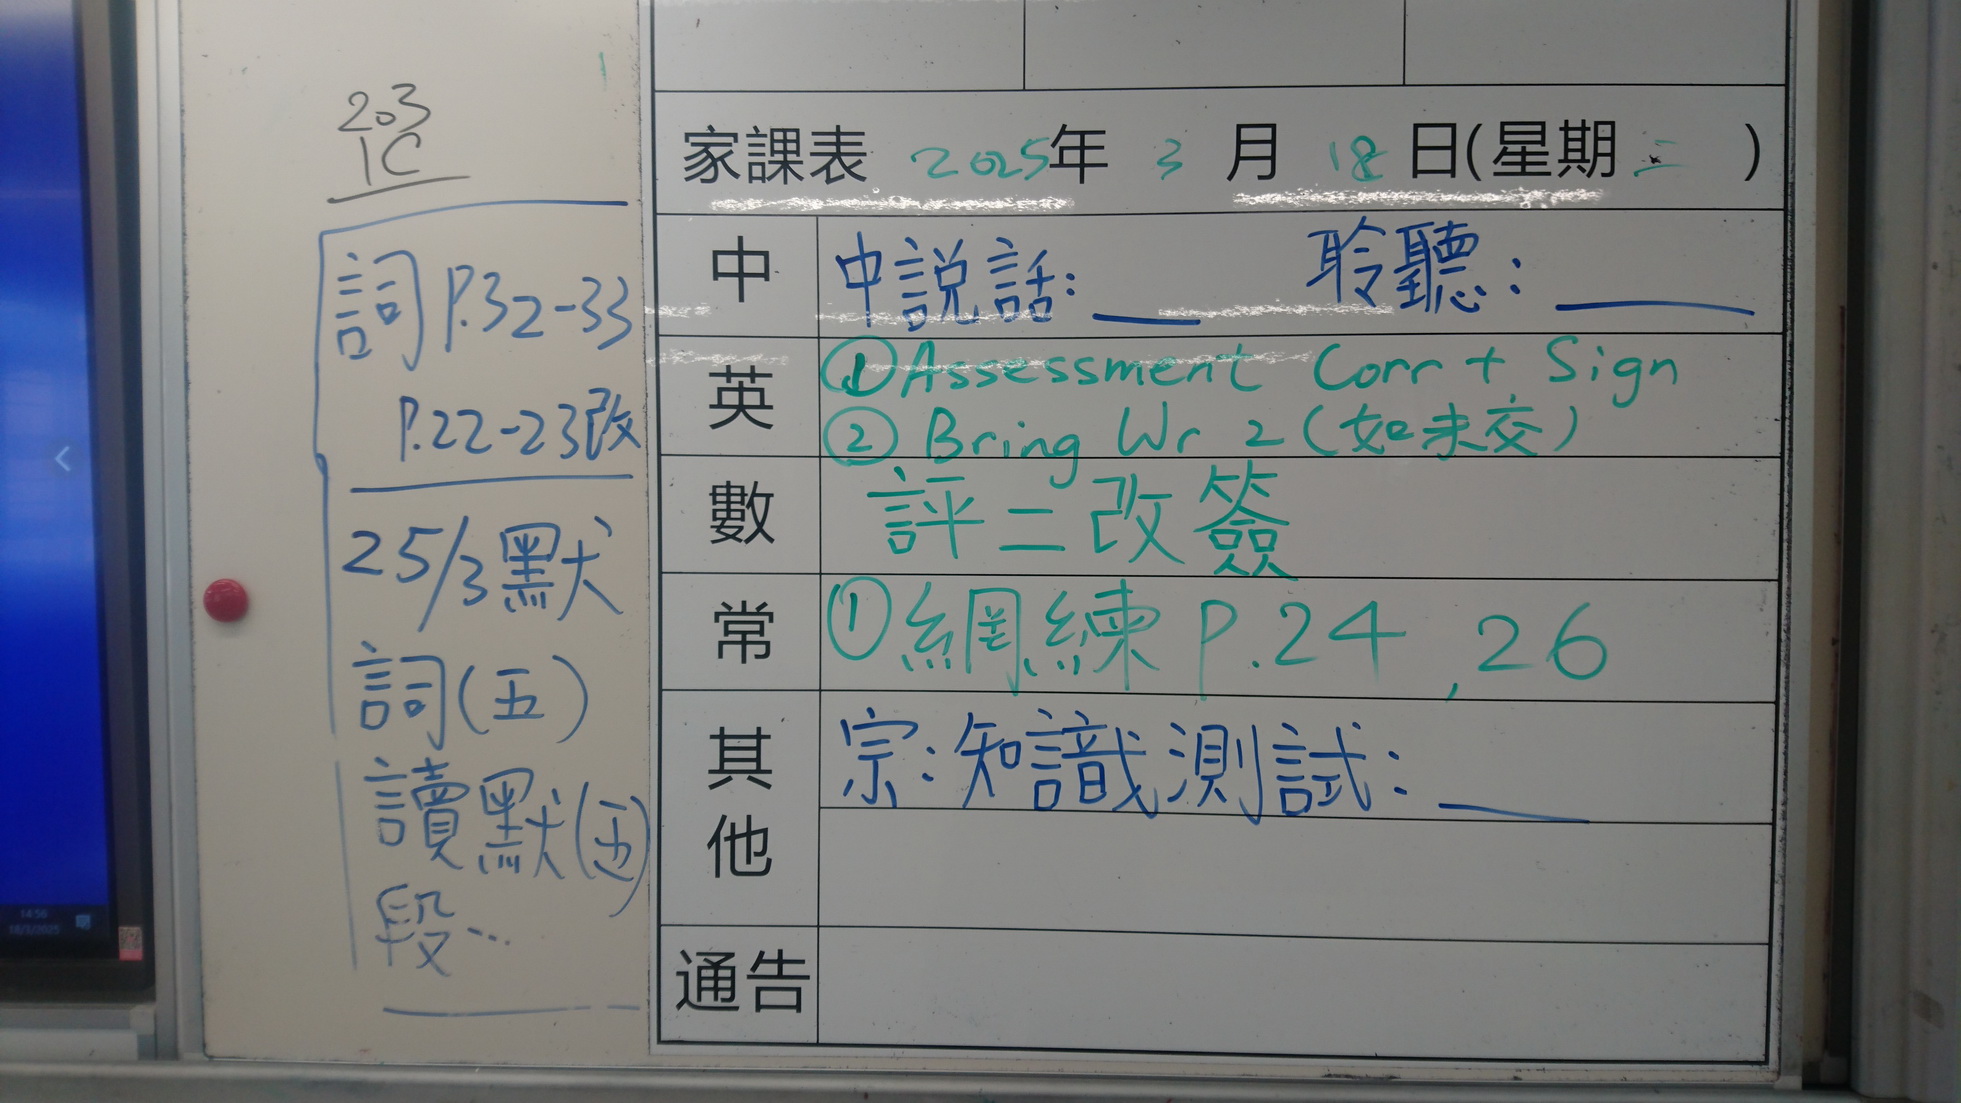 203
1C
詞 P.32-33
P.22-23改
25/3默
詞(五)
讀默(五)
段...
家課表 2025年 3 月 18 日(星期二)
中 中説話:___ 聆聽:___
英 ①Assessment Corr + Sign
②Bring Wr 2(如未交)
數 評二改簽
常 ①網練 P.24,26
其他 宗:知識測試:___
通告
14:56
18/3/2025